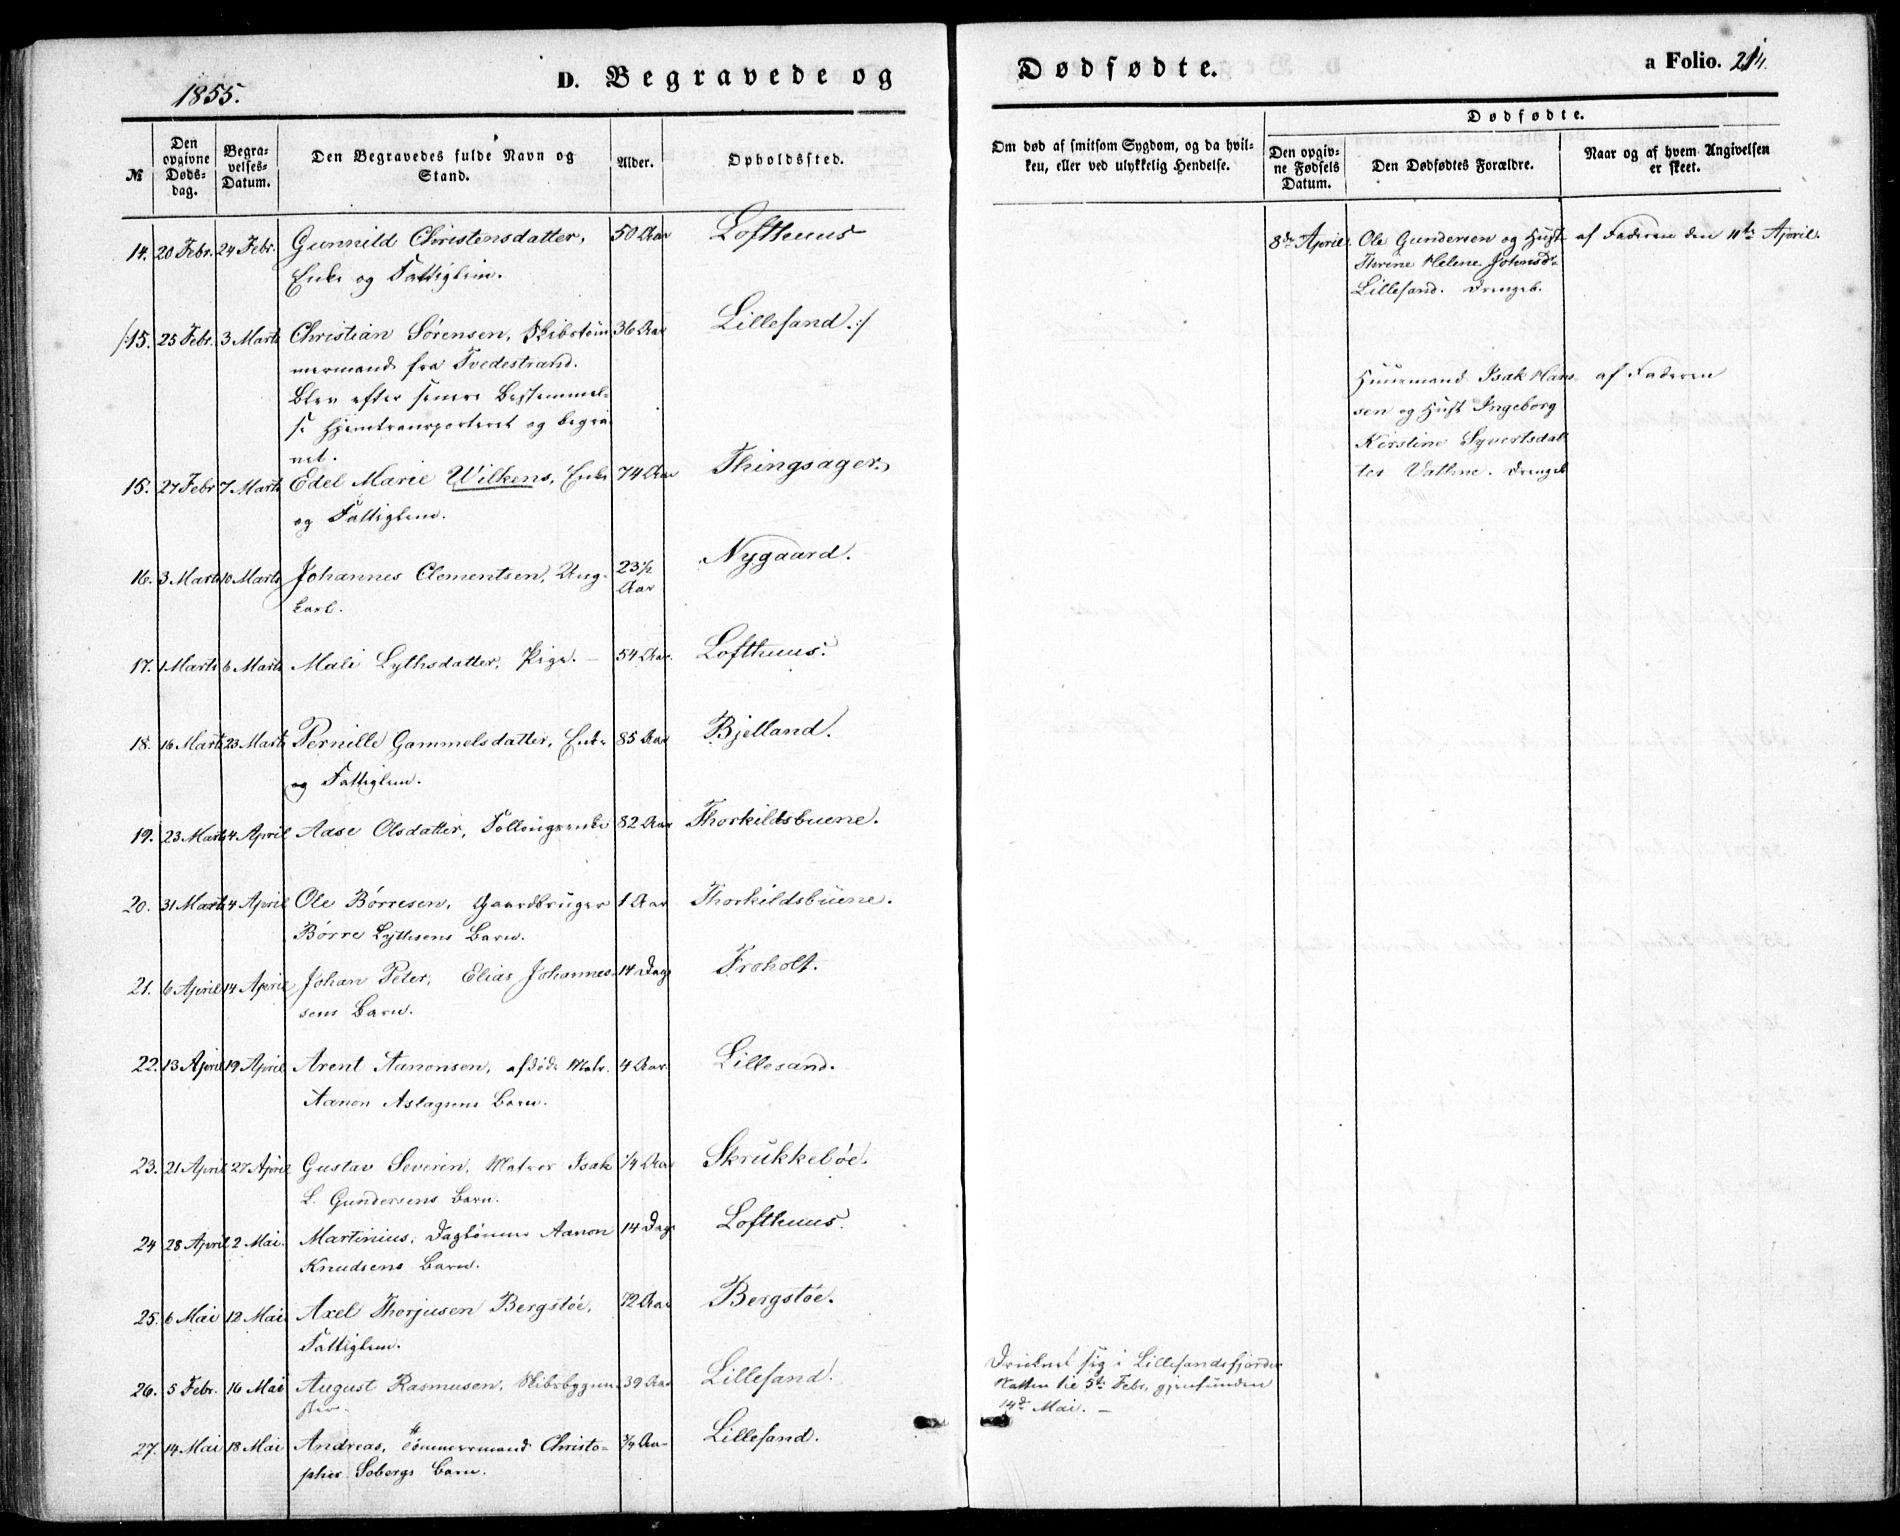 1855.
D. Begravede og
Dødfødte.
a Folio. 214.
№
Den opgivne Døds-dag.
Begra-velses-Datum.
Den Begravedes fulde Navn og Stand.
Alder.
Opholdssted.
Om død af smitsom Sygdom, og da hvil-
ken, eller ved ulykkelig Hendelse.
Dødfødte.
Den opgiv-ne Fødsels Datum.
Den Dødfødtes Forældre.
Naar og af hvem Angivelsen er skeet.
14. 20 Febr. 24 Febr. Gunnild Christensdatter, 50 Aar Lofthuus
Enke og Fattiglem.
/:15. 25 Febr. 3 Marts Christian Sørensen, Skibstøm- 36 Aar Lillesand.:/
mermand fra Tvedestrand.
Blev efter senere Bestemmel-
se hjemtransporteret og begra-
vet.
15. 27 Febr 7 Marts Edel Marie Wilkens, Enke 74 Aar Thingsager.
og Fattiglem.
16. 3 Marts 10 Marts Johannes Clementsen, Ung- 23½ Aar Nygaard.
karl.
17. 1 Marts 6 Marts Mali Lythsdatter, Pige. — 54 Aar. Lofthuus.
18. 16 Marts 23 Marts Pernille Gammelsdatter, Enke 85 Aar Bjelland.
og Fattiglem.
19. 23 Marts 4 April Aase Olsdatter, Follougsenke 82 Aar Thorkildsbuene.
20. 31 Marts 4 April Ole Børresen, Gaardbruger 1 Aar Thorkildsbuene.
Børre Lythsens Barn.
21. 6 April 14 April Johan Peter, Elias Johannes- 14 Dage Froholt.
sens Barn.
22. 13 April 19 April Arent Aanonsen, afdøde Matr. 4 Aar. Lillesand.
Aanon Aslagsens Barn.
23. 21 April 27 April Gustav Severin, Matros Isak ¼ Aar Skrukkebøe.
L. Gundersens Barn.
24 28 April 2 Mai. Martinius, Daglønner Aanon 14 Dage Lofthuus.
Knudsens Barn.
25. 6 Mai 12 Mai Axel Thorjusen Bergstøe, 72 Aar Bergstøe.
Fattiglem.
26. 5 Febr. 16 Mai August Rasmusen, Skibsbygme- 39 Aar Lillesand.
ster.
27. 14 Mai 18 Mai Andreas, Tømmermand Christo- ¾ Aar Lillesand.
pher Sobergs Barn.
8de April. Ole Gundersen og Hust. af Faderen den 11te April.
Thrine Helene Johnsdr
Lillesand. Drengeb.
Huusmand Isak Han- af Faderen
sen og Hust Ingeborg
Kirstine Syvertsdat
ter Vathne. Drengeb
Druknet sig i Lillesandsfjorden
Natten til 5te Febr., gjenfunden
14de Mai. —